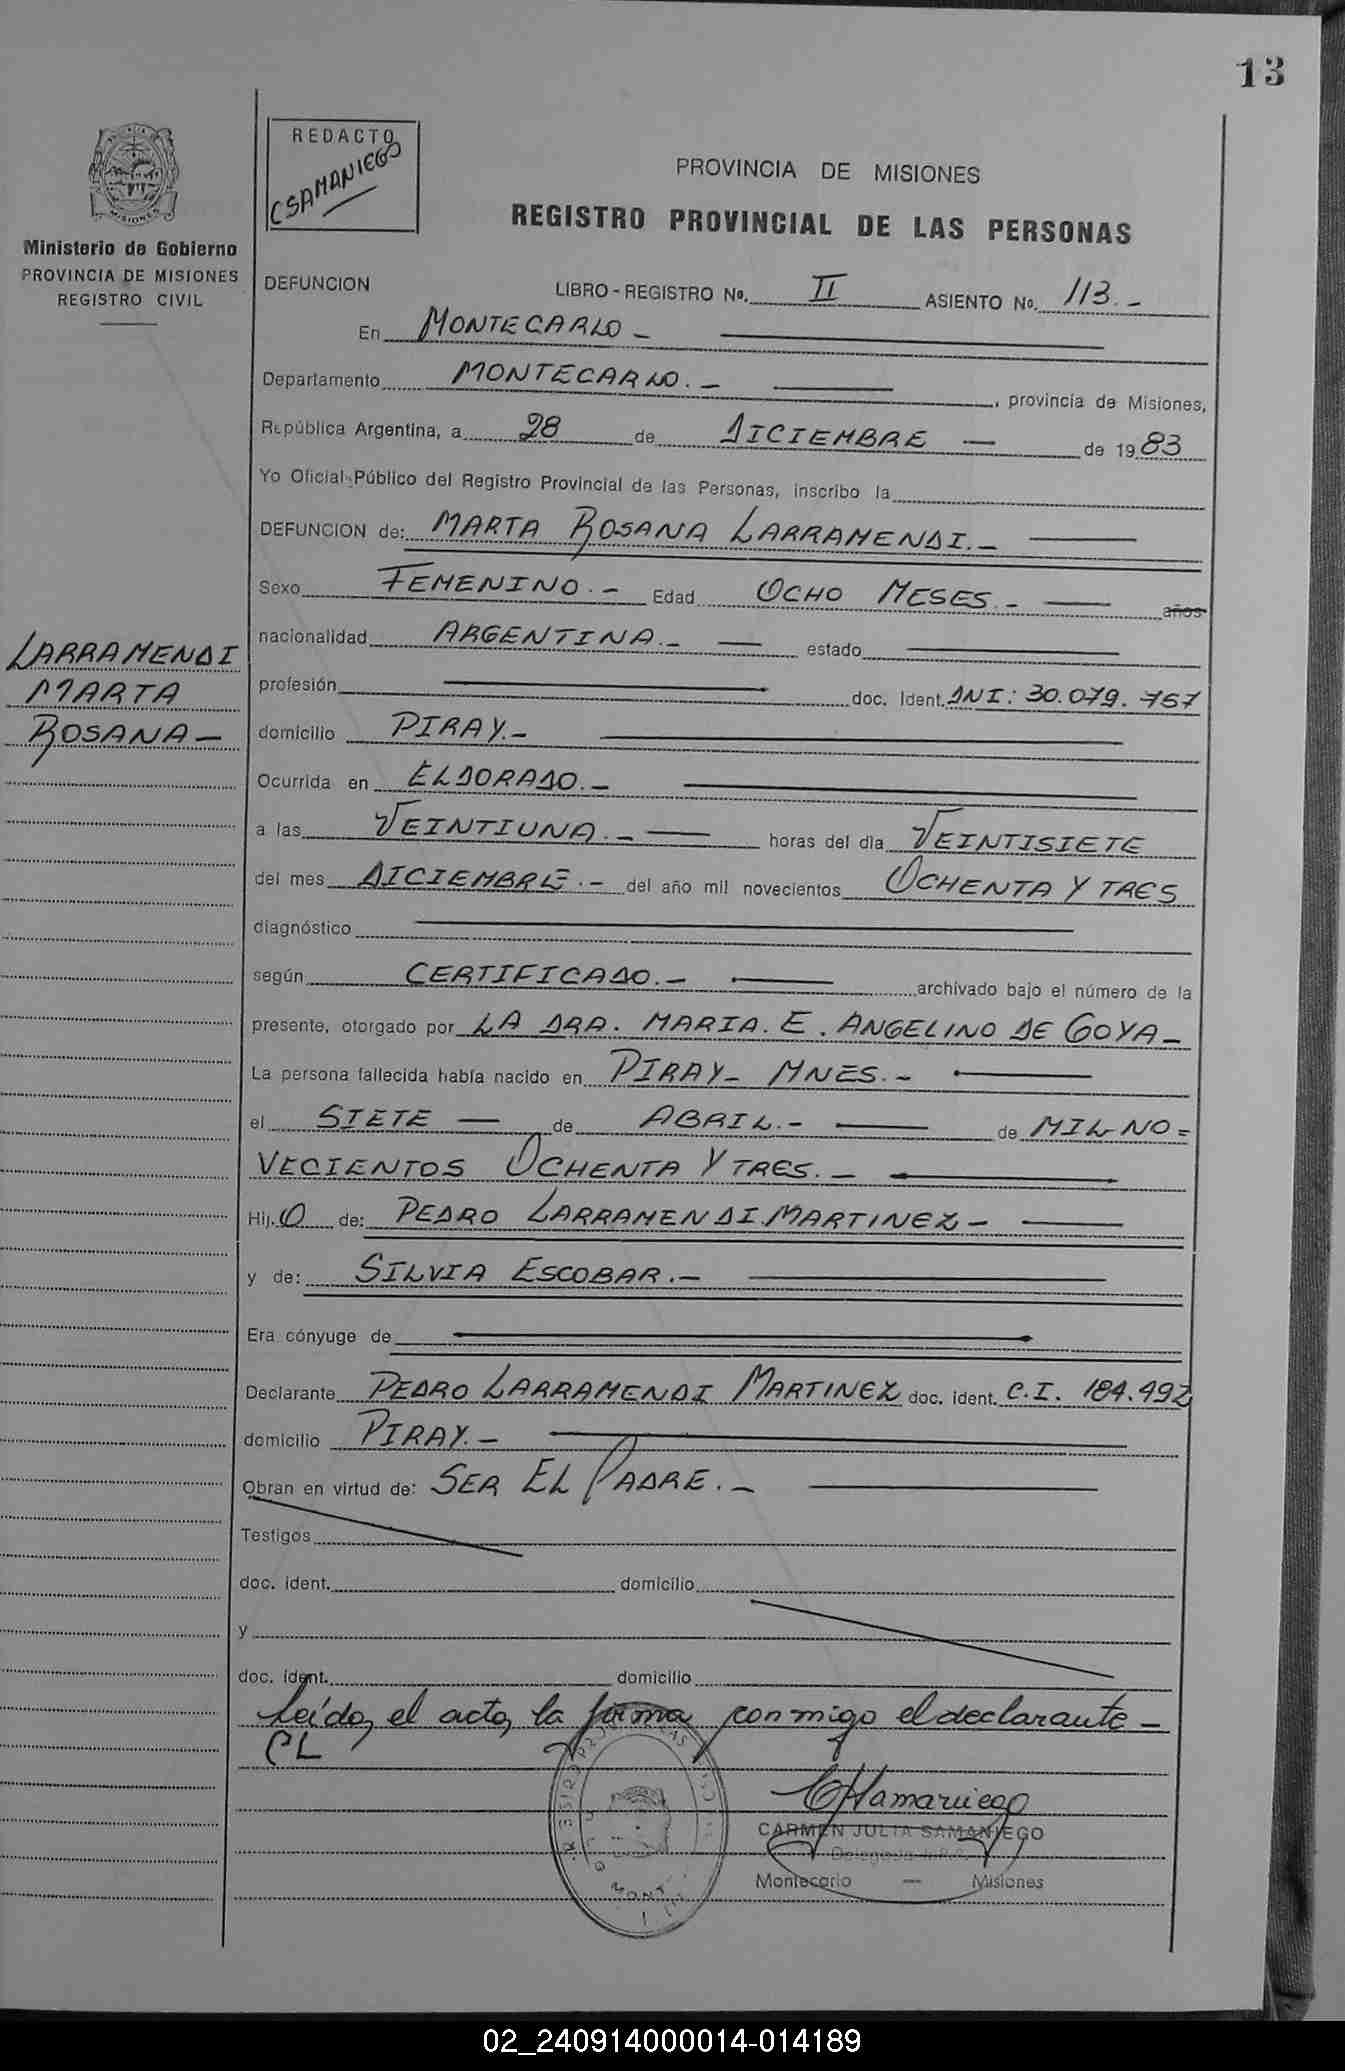 13
REDACTO
CSAMANIEGO
PROVINCIA DE MISIONES
REGISTRO PROVINCIAL DE LAS PERSONAS
MISIONES
Ministerio de Gobierno
PROVINCIA DE MISIONES
REGISTRO CIVIL
DEFUNCION LIBRO - REGISTRO No. II ASIENTO No. 113. -
En MONTECARLO -
Departamento MONTECARLO. - , provincia de Misiones,
República Argentina, a 28 de DICIEMBRE - de 1983
Yo Oficial Público del Registro Provincial de las Personas, inscribo la
DEFUNCION de: MARTA ROSANA LARRAMENDI. -
Sexo FEMENINO. - Edad OCHO MESES. - años
nacionalidad ARGENTINA. - estado
LARRAMENDI
MARTA
ROSANA -
profesión doc. Ident. DNI: 30.079.767
domicilio PIRAY. -
Ocurrida en ELDORADO. -
a las VEINTIUNA. - horas del día VEINTISIETE
del mes DICIEMBRE. - del año mil novecientos OCHENTA Y TRES
diagnóstico
según CERTIFICADO. - archivado bajo el número de la
presente, otorgado por LA DRA. MARIA. E. ANGELINO DE GOYA -
La persona fallecida había nacido en PIRAY - MNES. -
el SIETE - de ABRIL. - de MIL NO =
VECIENTOS OCHENTA Y TRES. -
Hij. O de: PEDRO LARRAMENDI MARTINEZ -
y de: SILVIA ESCOBAR. -
Era cónyuge de
Declarante PEDRO LARRAMENDI MARTINEZ doc. ident. C.I. 184.492
domicilio PIRAY. -
Obran en virtud de: SER EL PADRE. -
Testigos
doc. ident. domicilio
y
doc. ident. domicilio
Leída el acta, la firma conmigo el declarante -
CL
CSamaniego
CARMEN JULIA SAMANIEGO
Delegada
Montecarlo - Misiones
02_240914000014-014189